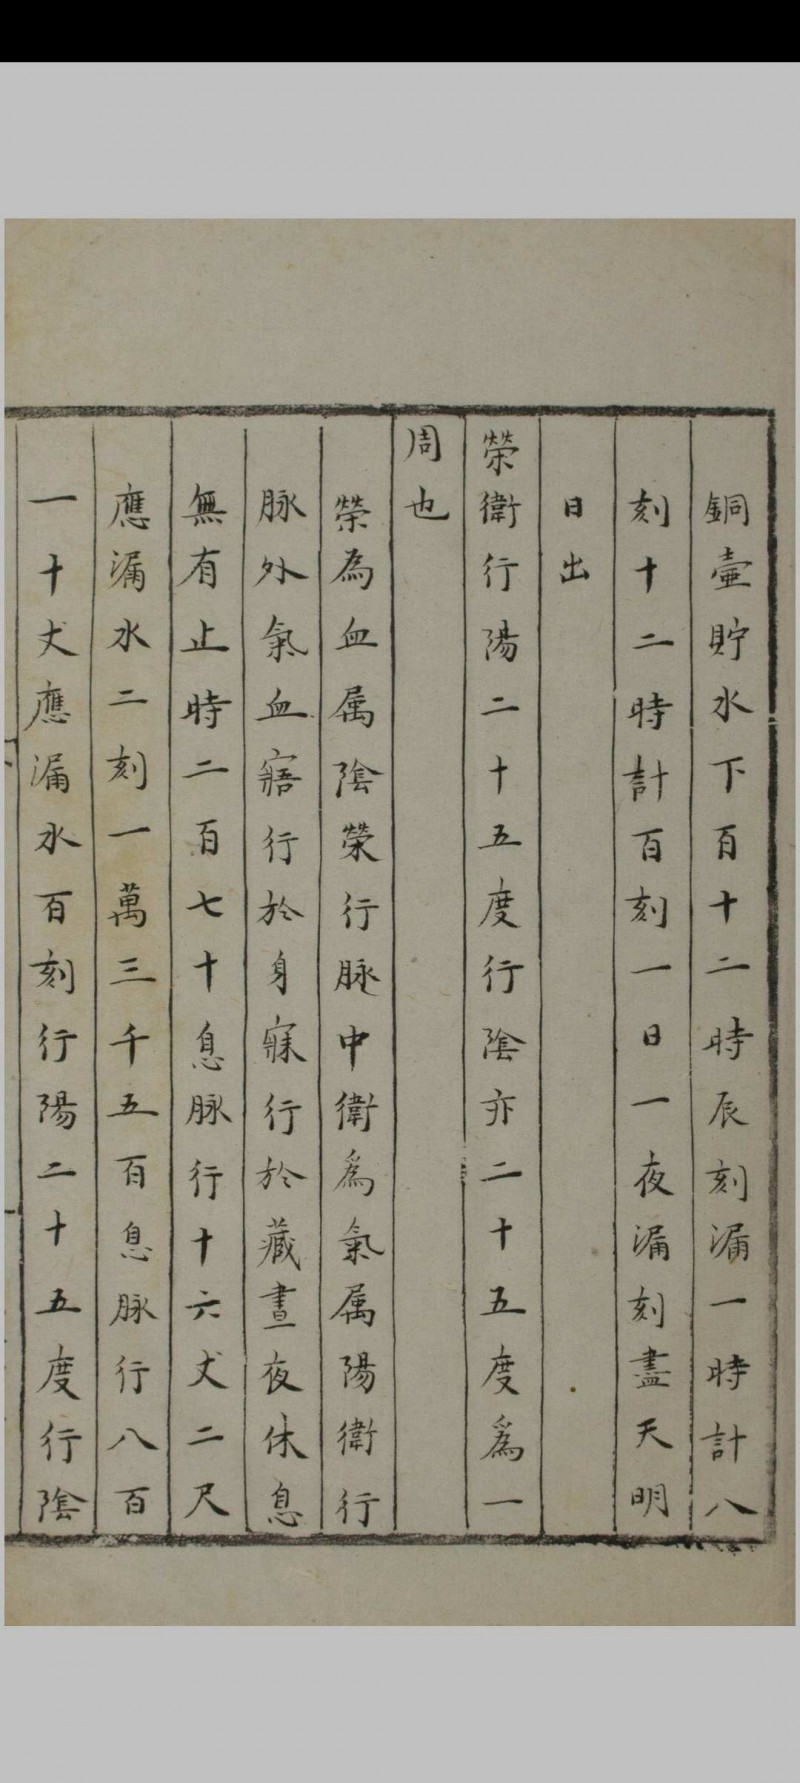 銅壷貯水下百十二時辰刻漏一時計八
刻十二時計百刻一日一夜漏刻盡天明
日出
榮衛行陽二十五度行陰亦二十五度爲一
周也
榮為血属陰榮行脉中衛爲氣属陽衛行
脉外氣血寤行於身寐行於藏晝夜休息
無有止時二百七十息脉行十六丈二尺
應漏水二刻一萬三千五百息脉行八百
一十丈應漏水百刻行陽二十五度行陰